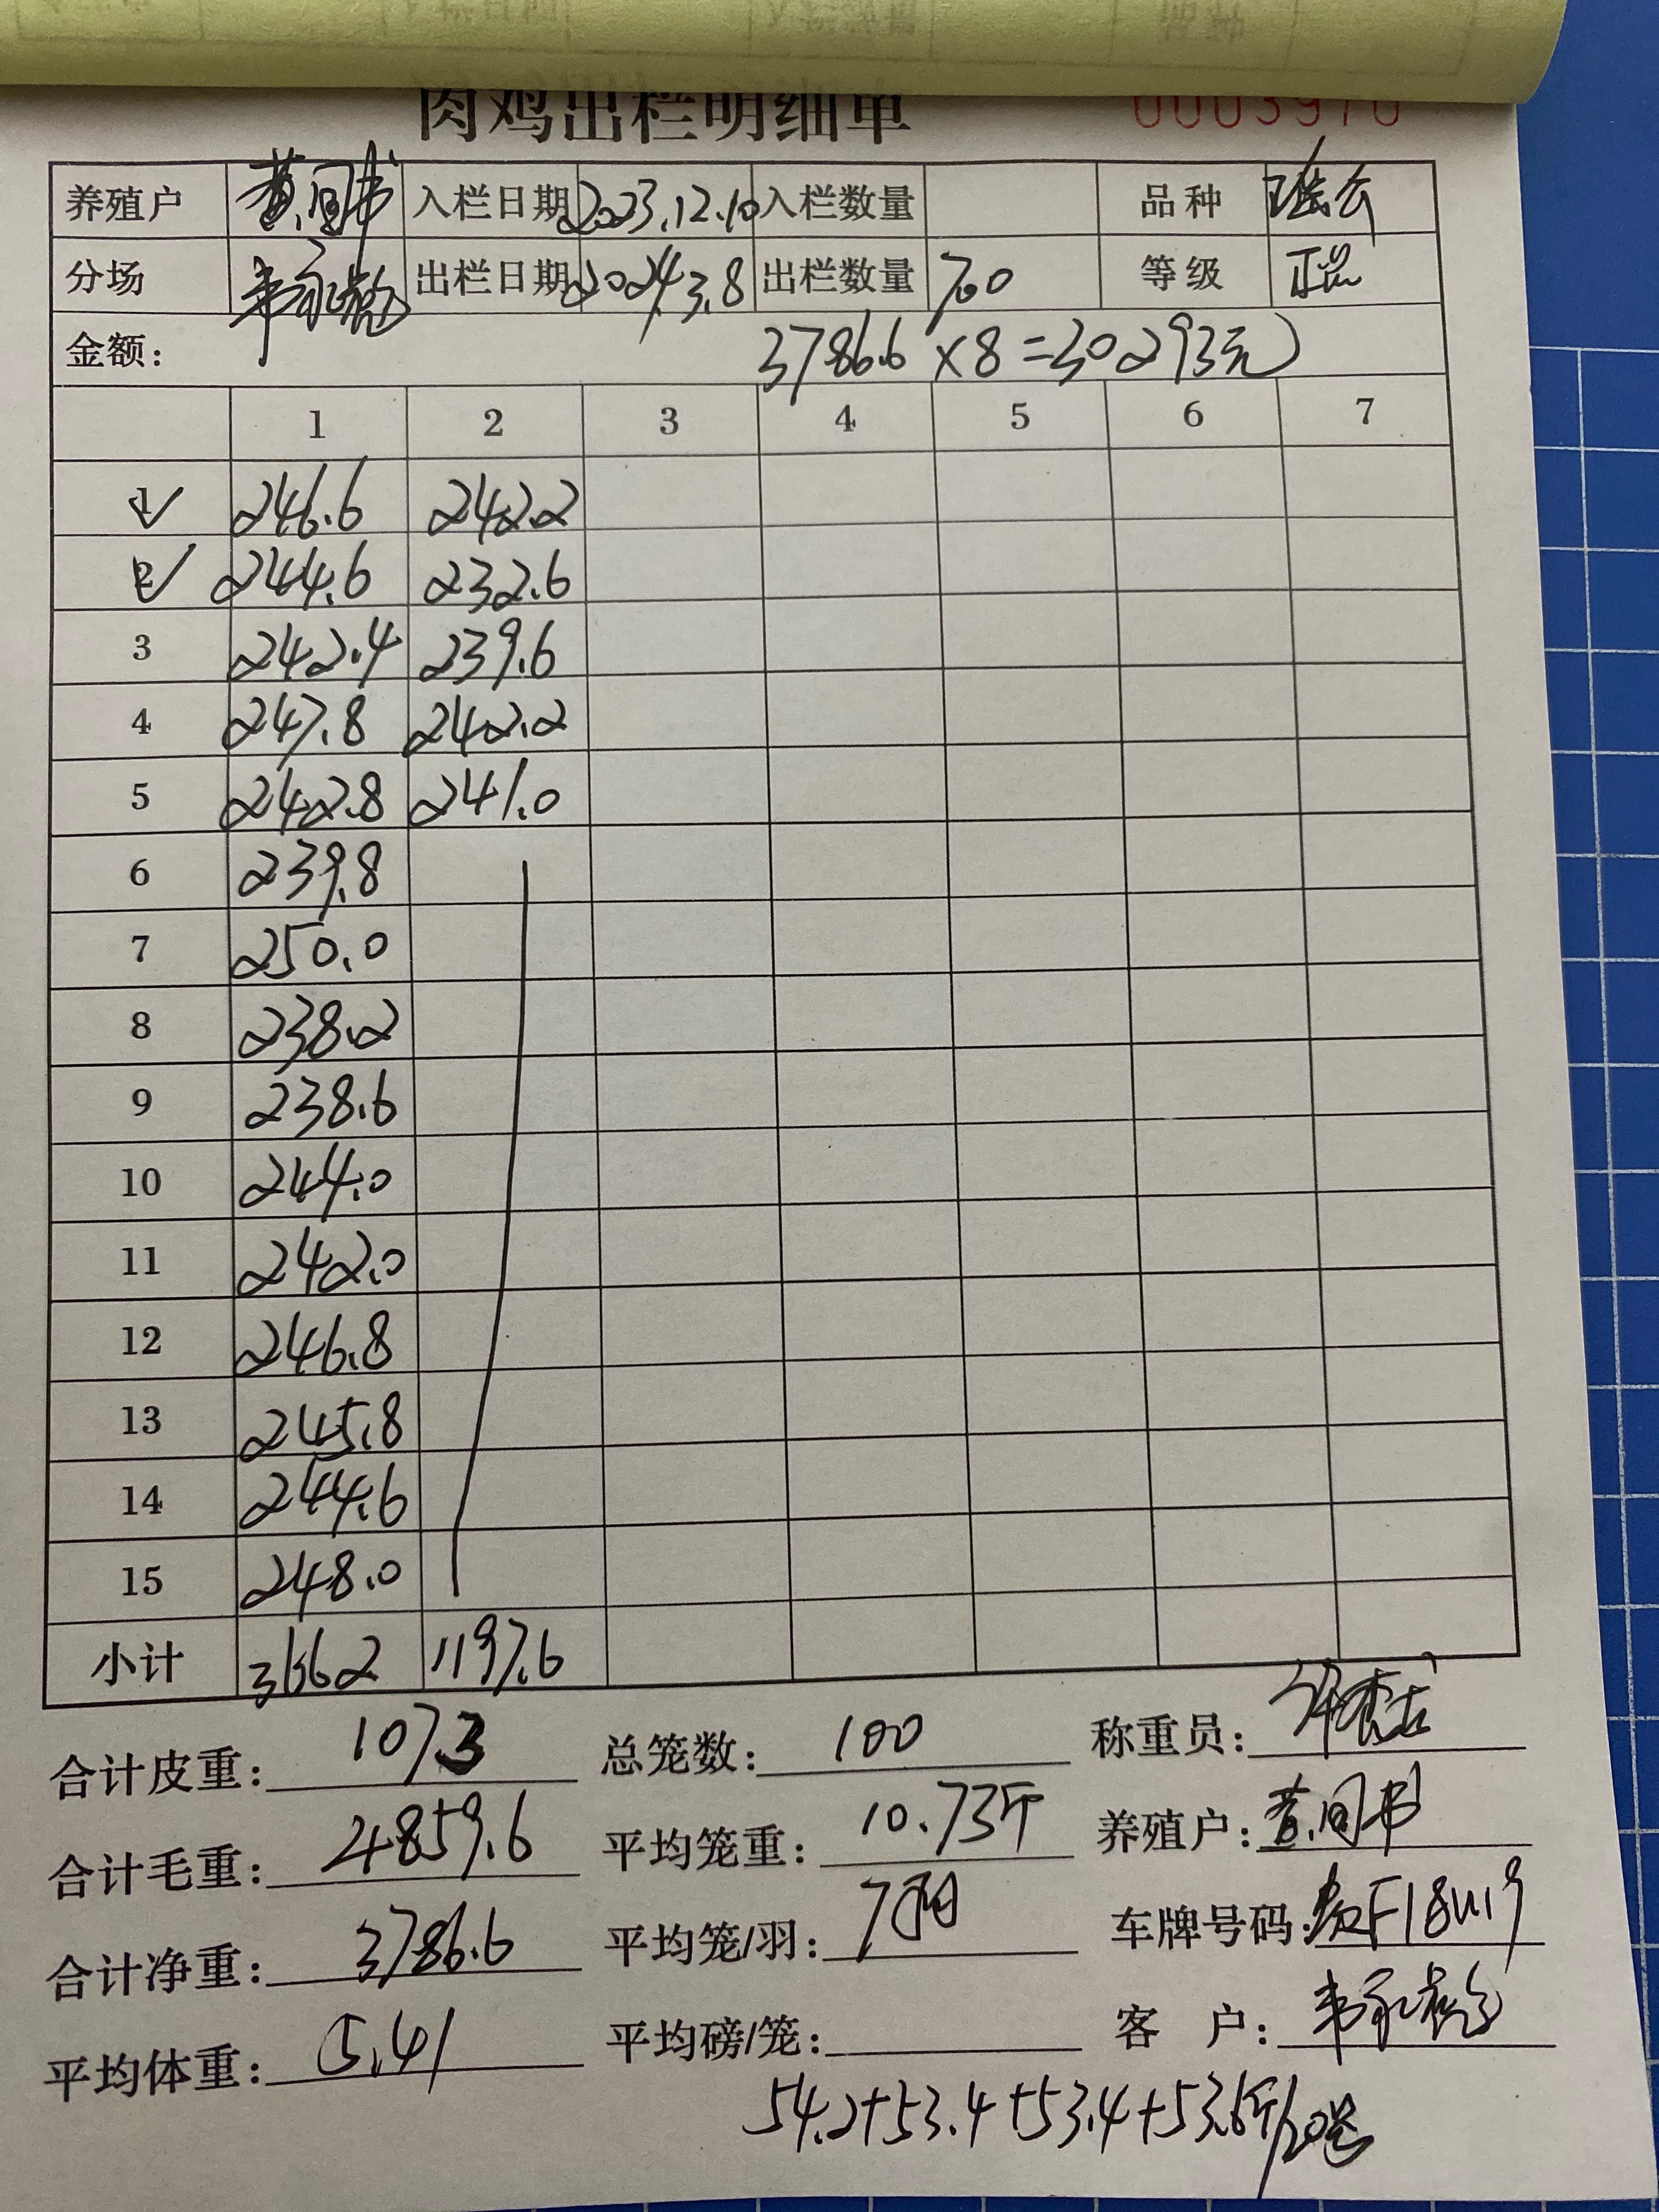 肉鸡出栏明细单 0003970
养殖户 黄间书 入栏日期 2023.12.10 入栏数量 品种
分场 韦永 出栏日期 2024.3.8 出栏数量 700 等级 正品
金额: 3786.6×8=30293元
1 2 3 4 5 6 7
1 246.6 242.2
2 244.6 232.6
3 242.4 239.6
4 247.8 242.2
5 242.8 241.0
6 239.8
7 250.0
8 238.2
9 238.6
10 244.0
11 242.0
12 246.8
13 245.8
14 244.6
15 248.0
小计 3662 1197.6
合计皮重: 1073 总笼数: 100 称重员:
合计毛重: 4859.6 平均笼重: 10.73斤 养殖户: 黄间书
合计净重: 3786.6 平均笼/羽: 7羽 车牌号码: 贵F18U19
平均体重: 5.41 平均磅/笼: 客户: 韦永
54.2+53.4+53.4+53.6斤/20笼